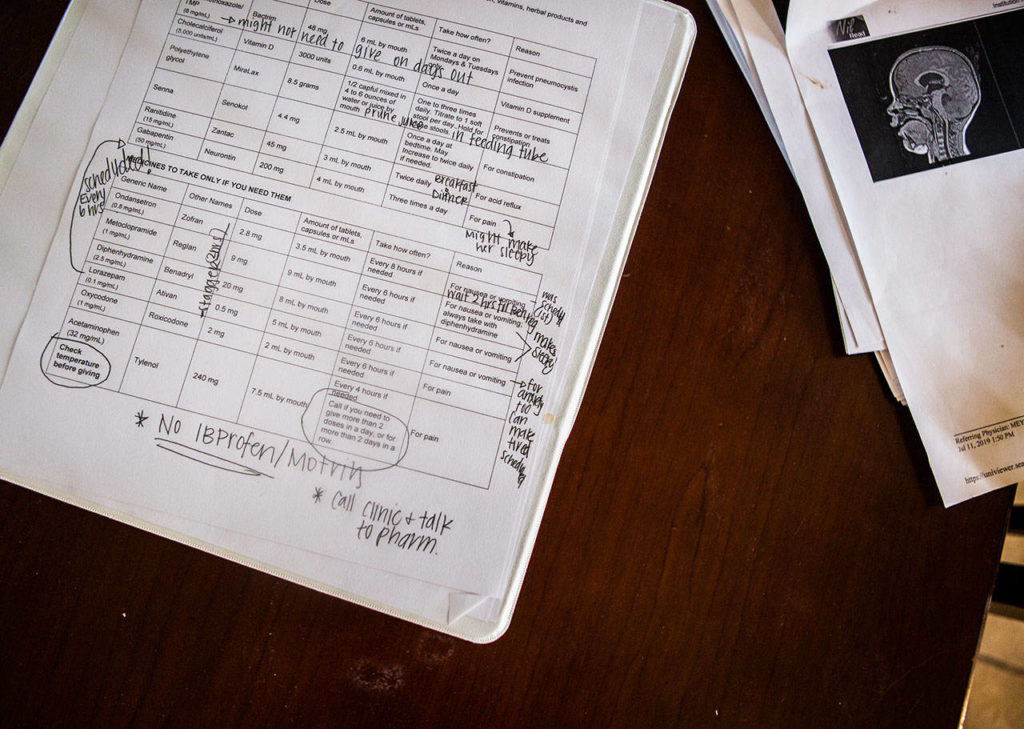 vitamins, herbal products and
Dose
Amount of tablets, capsules or mLs
Take how often?
Reason
TMP
(8 mg/mL)
Bactrim
48 mg
6 mL by mouth
Twice a day on Mondays & Tuesdays
Prevent pneumocystis infection
→ might not need to give on days out
Cholecalciferol
(5,000 units/mL)
Vitamin D
3000 units
0.6 mL by mouth
Once a day
Vitamin D supplement
Polyethylene glycol
MiraLax
8.5 grams
1/2 capful mixed in 4 to 6 ounces of water or juice by mouth
prune juice in feeding tube
One to three times daily. Titrate to 1 soft stool per day. Hold for loose stools.
Prevents or treats constipation
Senna
Senokot
4.4 mg
2.5 mL by mouth
Once a day at bedtime. May increase to twice daily if needed.
For constipation
Ranitidine
(15 mg/mL)
Zantac
45 mg
3 mL by mouth
Twice daily
Breakfast
Dinner
For acid reflux
Gabapentin
(50 mg/mL)
Neurontin
200 mg
4 mL by mouth
Three times a day
For pain
might make
her sleepy
scheduled!
Every
6 hrs
MEDICINES TO TAKE ONLY IF YOU NEED THEM
Generic Name
Other Names
Dose
Amount of tablets, capsules or mLs
Take how often?
Reason
Ondansetron
(0.8 mg/mL)
Zofran
2.8 mg
3.5 mL by mouth
Every 8 hours if needed
For nausea or vomiting
Metoclopramide
(1 mg/mL)
Reglan
9 mg
9 mL by mouth
Every 6 hours if needed
For nausea or vomiting, always take with diphenhydramine
Diphenhydramine
(2.5 mg/mL)
Benadryl
20 mg
8 mL by mouth
Every 6 hours if needed
For nausea or vomiting
Lorazepam
(0.1 mg/mL)
Ativan
0.5 mg
5 mL by mouth
Every 6 hours if needed
For nausea or vomiting
Oxycodone
(1 mg/mL)
Roxicodone
2 mg
2 mL by mouth
Every 4 hours if needed
For pain
Acetaminophen
(32 mg/mL)
Check temperature before giving
Tylenol
240 mg
7.5 mL by mouth
Call if you need to give more than 2 doses in a day, or for more than 2 days in a row.
For pain
wait 2 hrs
makes
sleepy
→ for
anxiety
too
can
make
tired
* NO IBProfen/Motrin
* call clinic + talk
to pharm.
Referring Physician: MEY
Jul 11, 2019 1:50 PM
https://univiewer.sea